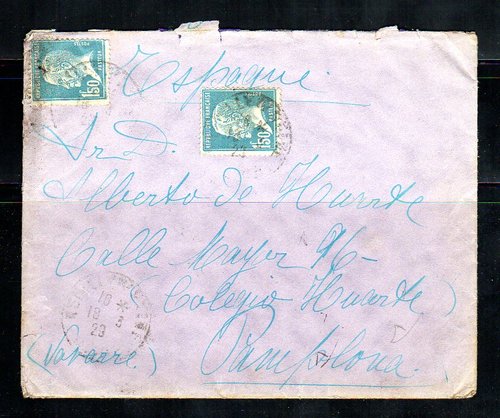 Espagne.
Sr. D.
Alberto de Huarte
Calle Mayor 96-
Colegio Huarte
(Navarre) Pamplona.
REPUBLIQUE FRANÇAISE
1F50
POSTES
REPUBLIQUE FRANÇAISE
1F50
16 *
18 3
23